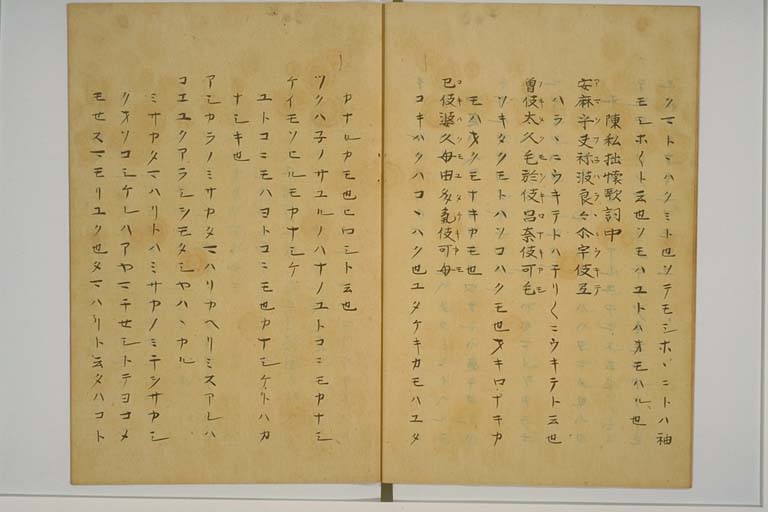 ツマトヽハクミト也ソテモシホヽニトハ袖
モシホ〱ト云也ソモハユトハオモハル也
陳私拙懐歌詞中
安麻乎夫祢波良々尓宇伎弖
ハラヽニウキテトハチリ〱ニウキテト云也
曽伎太久毛於伎呂奈伎可毛
ソキタクモトハソコハクモ也オキロナキカ
モハオクモナキカモ也
己伎婆久母由多氣伎可母
コキハクハコヽハク也ユタケキカモハユタ
カナルカモ也ヒロシト云也
ツクハ子ノサユルノハナノユトコニモカナシ
ケイモソヒルモカナシケ
ユトコニモハヨトコニモ也カナシケトハカ
ナシキ也
アシカラノミサカタマハリカヘリミスアレハ
コエユクアラシシモタシヤハヽカル
ミサカタマハリトハミサカノミテシサカシ
クオソコシケレハアヤマチセシトテヨコメ
モセスマモリユク也タマハリト云タハコト